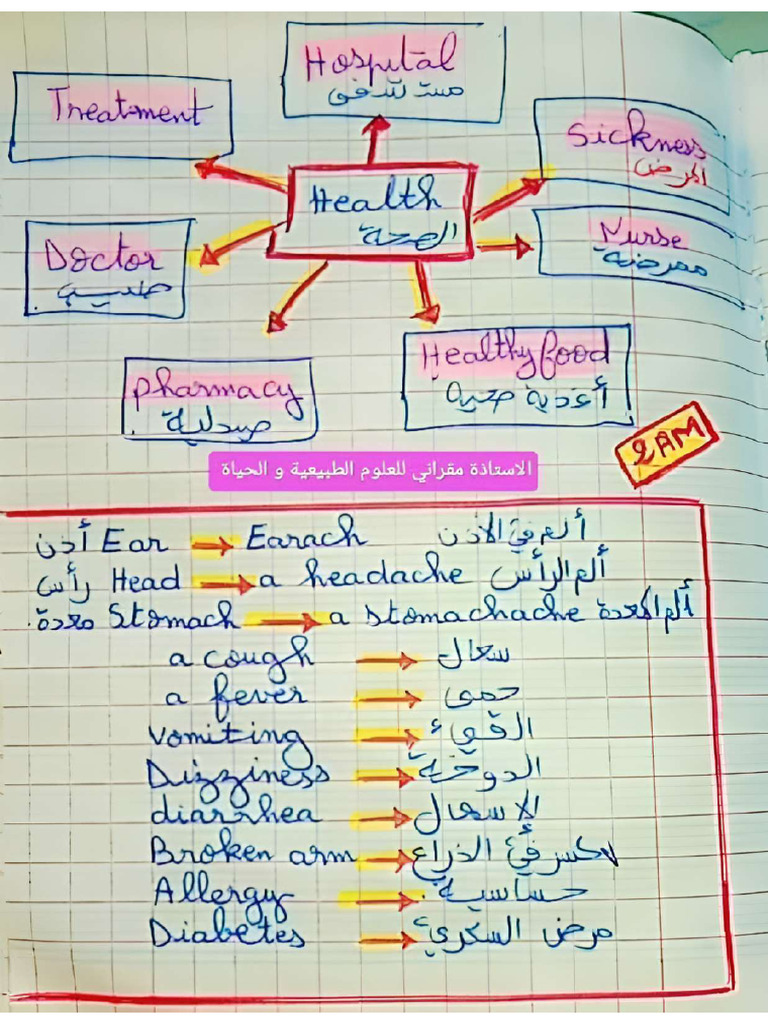 Hospital
مستشفى
Treatment
Sickness
المرض
Health
الصحة
Nurse
ممرضة
Doctor
طبيب
Healthy food
أغذية صحية
pharmacy
صيدلية
2AM
الاستاذة مقراني للعلوم الطبيعية و الحياة
أذن Ear → Earach ألم في الأذن
رأس Head → a headache ألم الرأس
معدة Stomach → a stomachache ألم المعدة
a cough → سعال
a fever → حمى
Vomiting → القيء
Dizziness → الدوخة
diarrhea → الاسهال
Broken arm → كسر في الذراع
Allergy → حساسية
Diabetes → مرض السكري